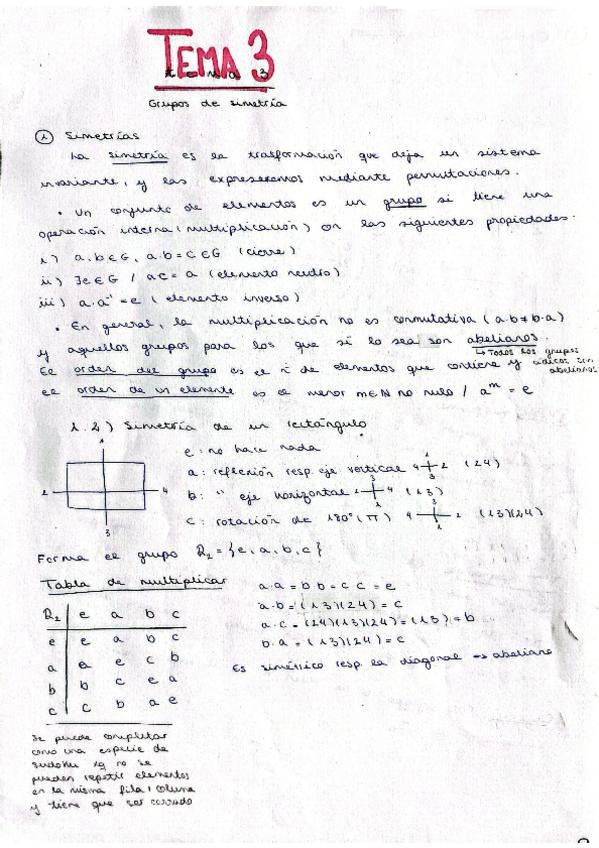 TEMA 3
tema 3
Grupos de simetría
1 Simetrías
La simetría es la trasformación que deja un sistema
invariante, y las expresaremos mediante permutaciones.
• Un conjunto de elementos es un grupo si tiene una
operación interna (multiplicación) con las siguientes propiedades.
i) a, b ∈ G, a·b = c ∈ G (cierre)
ii) ∃e ∈ G / ae = a (elemento neutro)
iii) a·a⁻¹ = e (elemento inverso)
• En general, la multiplicación no es conmutativa (a·b ≠ b·a)
y aquellos grupos para los que sí lo sea son abelianos.
↳ Todos los grupos cíclicos son abelianos
El orden del grupo es el nº de elementos que contiene y
el orden de un elemento es el menor m∈N no nulo / aᵐ = e
1.2) Simetría de un rectángulo
1
2 4
3
e: no hace nada
a: reflexión resp. eje vertical 4 1 2 3 (24)
b: " eje horizontal 2 3 4 1 (13)
c: rotación de 180º (π) 4 3 2 1 (13)(24)
Forma el grupo R₂ = {e, a, b, c}
Tabla de multiplicar
R₂ e a b c
e e a b c
a a e c b
b b c e a
c c b a e
a·a = bb = cc = e
a·b = (13)(24) = c
a·c = (24)(13)(24) = (13) = b
b·a = (13)(24) = c
Es simétrico resp. la diagonal → abeliano
Se puede completar
como una especie de
sudoku xq no se
pueden repetir elementos
en la misma fila/columna
y tiene que ser cerrado